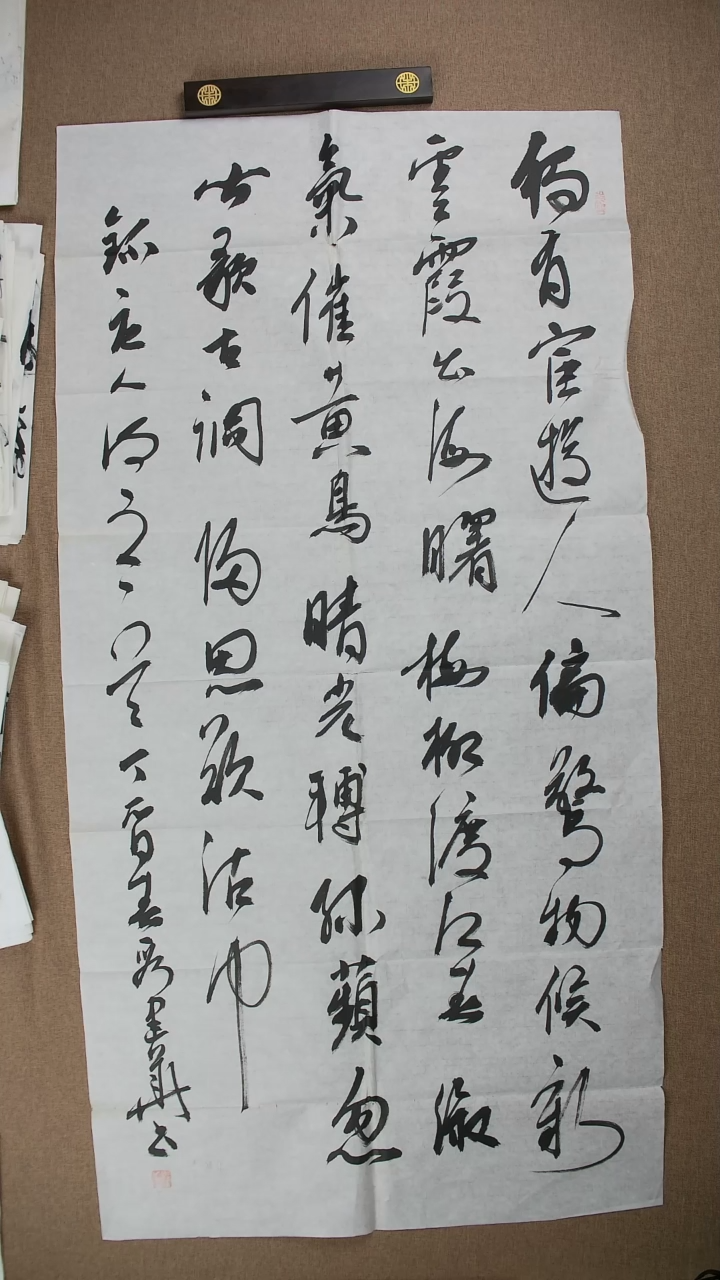 獨有宦遊人偏驚物候新
雲霞出海曙梅柳渡江春淑
氣催黄鳥晴光轉綠蘋忽
聞歌古調歸思欲沾巾
錄唐人詩 丁酉春 建華書